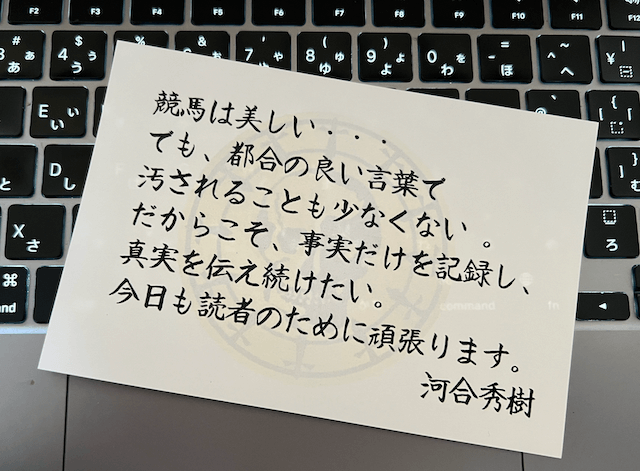 F2
F5
F6
F7
F8
F9
F10
F11
F12
# 3 ぁ あ
$ 4 ぅ う
& 6 ぉ お
7 や
( 8 ゅ ゆ
) 9 ょ よ
0 を わ
= - ほ
~ ^ へ
| ¥
E ぃ い
D し
X さ
ろ
⌘
command
fn
競馬は美しい・・・
でも、都合の良い言葉で
汚されることも少なくない 。
だからこそ、事実だけを記録し、
真実を伝え続けたい。
今日も読者のために頑張ります。
河合秀樹